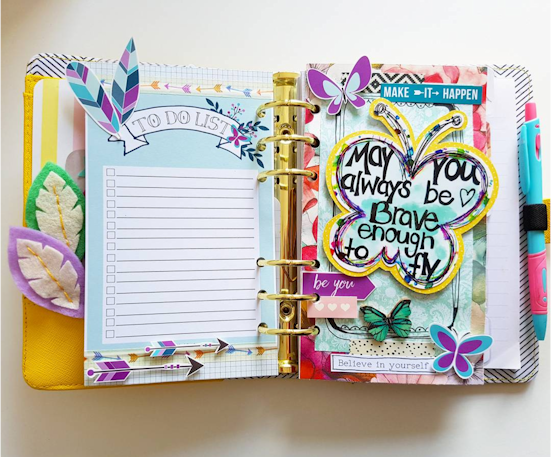 TO DO LIST
MAKE IT HAPPEN
May you
always be
Brave
enough
to fly
be you
Believe in yourself